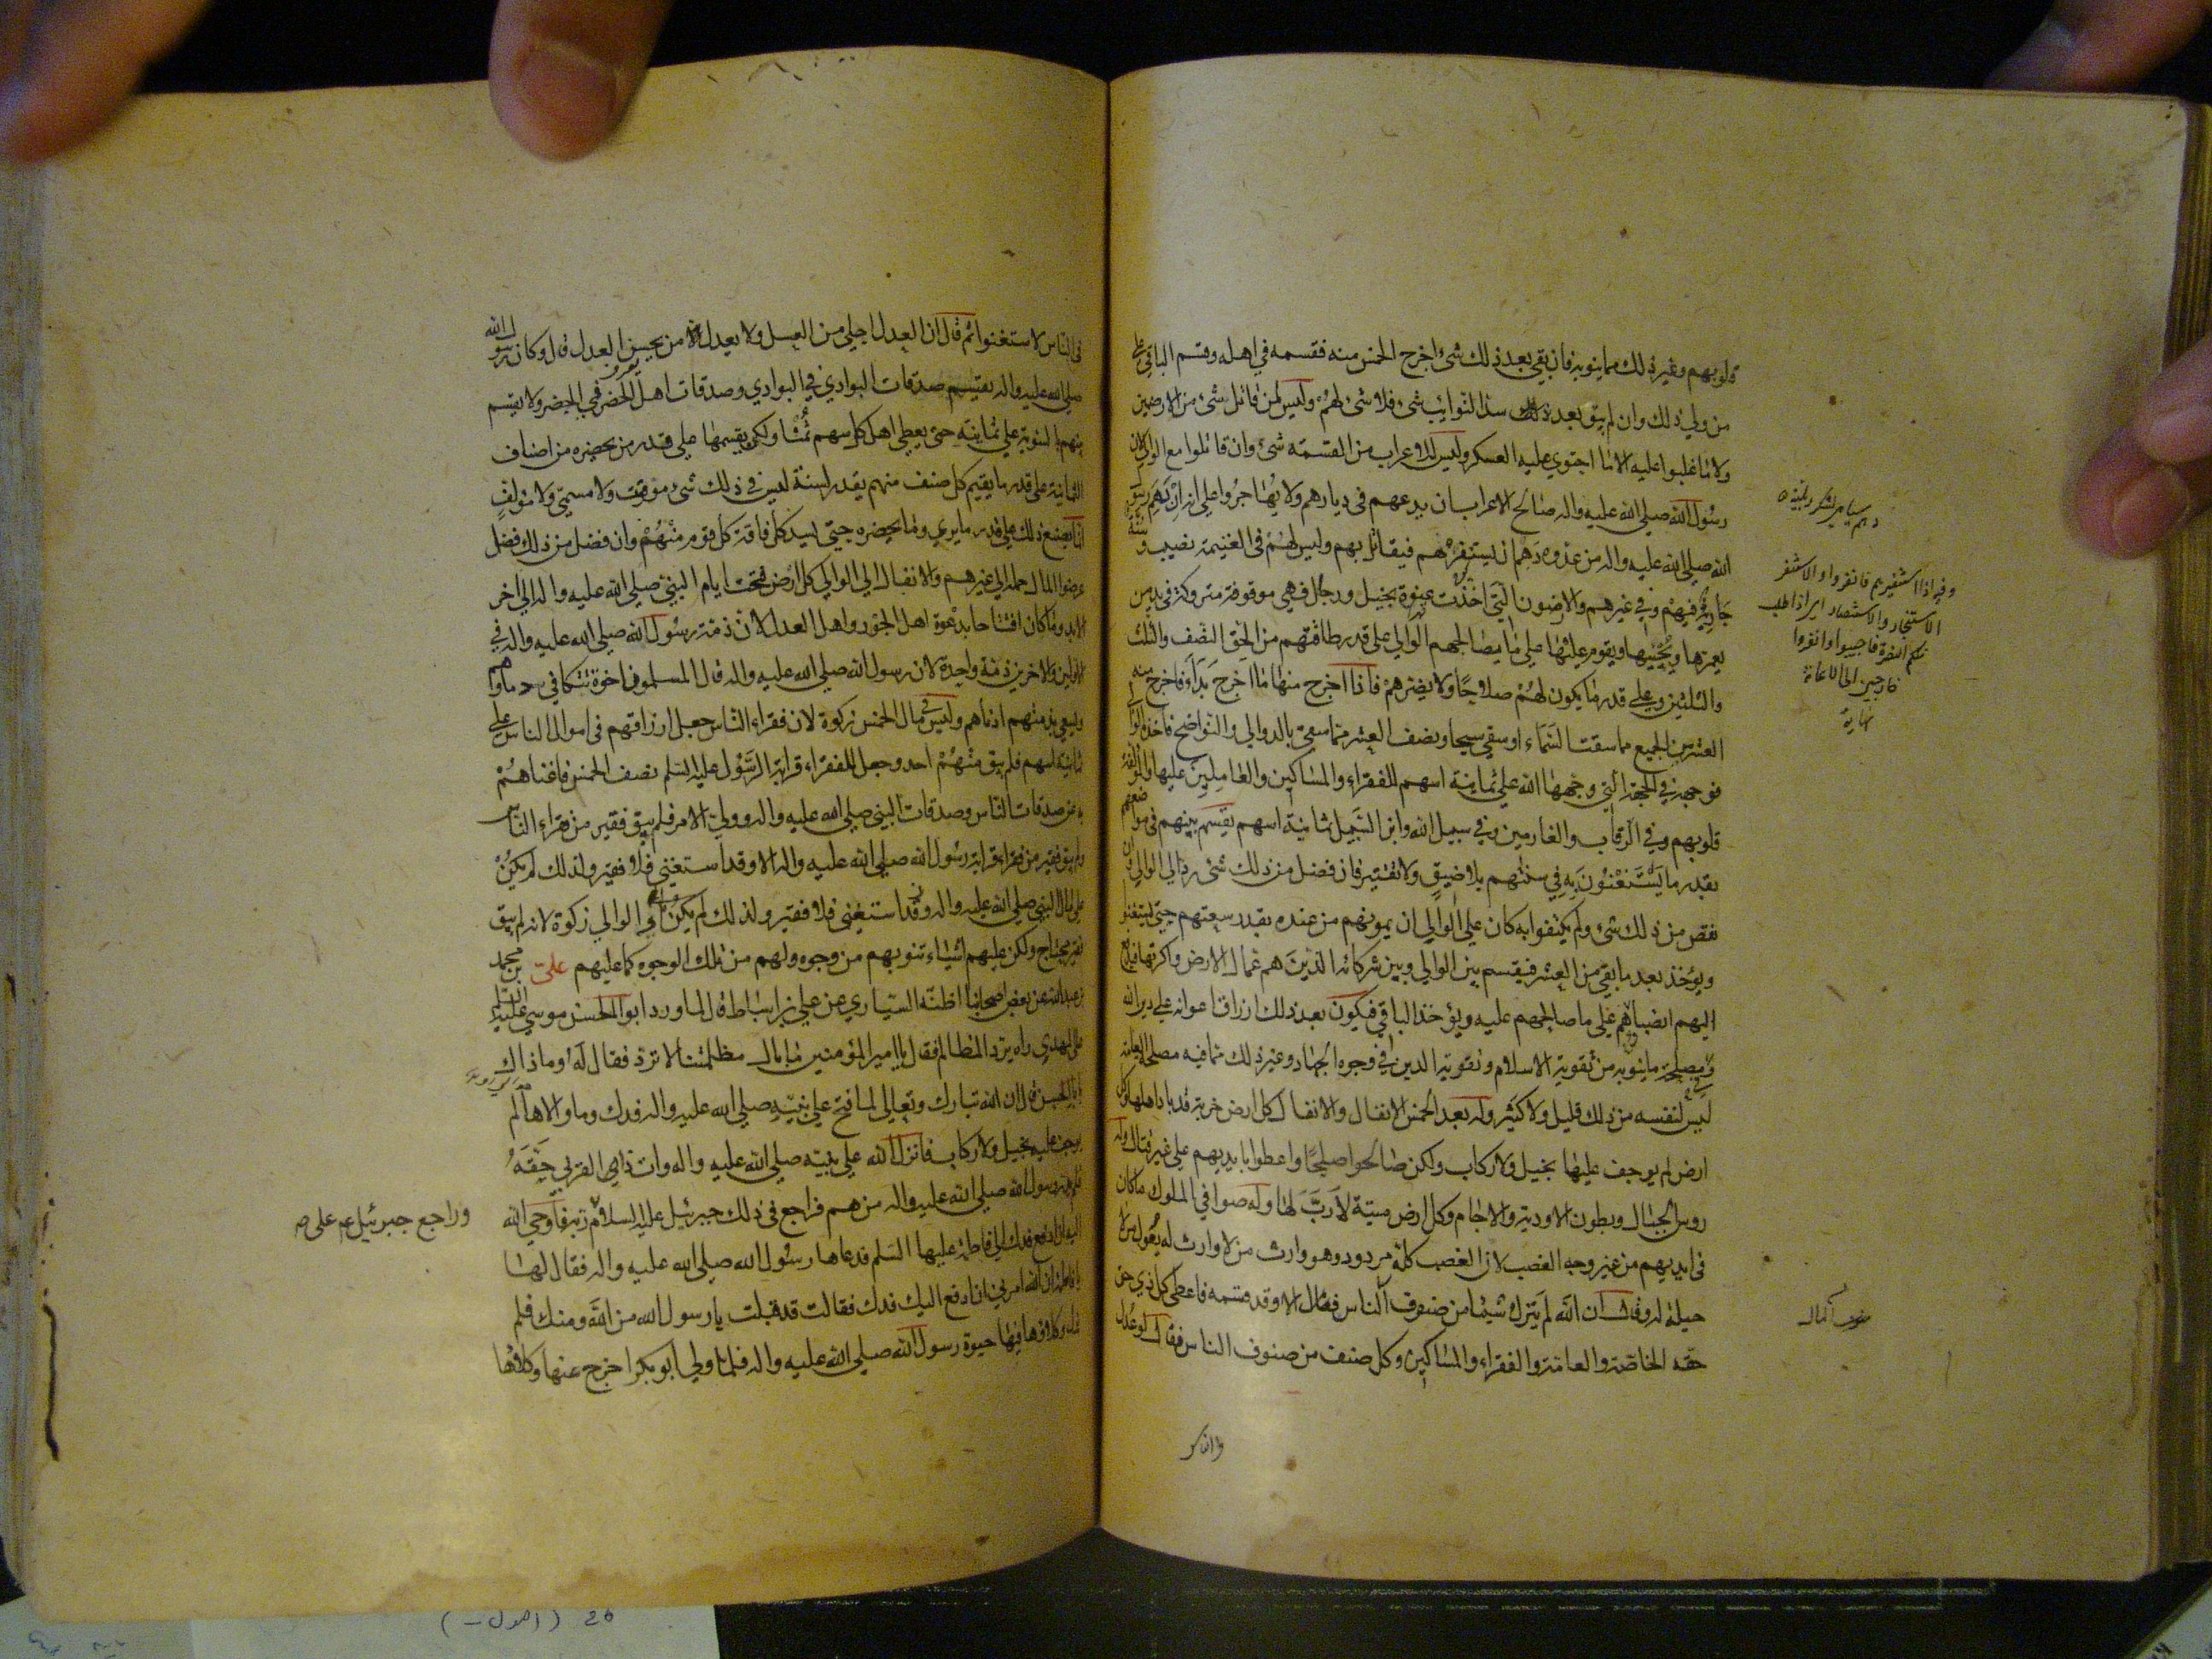 قلوبهم وغير ذلك مما ينوبه فان بقي بعد ذلك شئ اخرج الخمس منه فقسمه في اهله وقسم الباقي على
من ولي ذلك وان لم يبق بعد سد النوايب شئ فلا شئ لهم وليس لمن قاتل شئ من الارضين
ولا ما غلبوا عليه الا ما احتوي عليه العسكر وليس للاعراب من القسمة شئ وان قاتلوا مع الوالي لان
رسول الله صلي الله عليه واله صالح الاعراب ان يدعهم في ديارهم ولا يهاجروا علي انه ان دهم رسول
الله صلي الله عليه واله من عدوه دهم ان يستنفرهم فيقاتل بهم وليس لهم في الغنيمة نصيب وسنته
جارية فيهم وفي غيرهم والارضون التي اخذت عنوة بخيل ورجال فهي موقوفة متروكة في يد من
يعمرها ويحييها ويقوم عليها علي ما يصالحهم الوالي علي قدر طاقتهم من الحق النصف والثلث
والثلثين وعلي قدر ما يكون لهم صلاحا ولا يضرهم فاذا اخرج منها ما اخرج بدأ فاخرج منه
العشر من الجميع مما سقت السماء او سقي سيحا ونصف العشر مما سقي بالدوالي والنواضح فاخذه الوالي
فوجهه في الجهة التي وجهها الله علي ثمانية اسهم للفقراء والمساكين والعاملين عليها والمؤلفة
قلوبهم وفي الرقاب والغارمين وفي سبيل الله وابن السبيل ثمانية اسهم يقسم بينهم في مواضعهم
بقدر ما يستغنون به في سنتهم بلا ضيق ولا تقتير فان فضل من ذلك شئ رد الي الوالي وان
نقص من ذلك شئ ولم يكتفوا به كان علي الوالي ان يمونهم من عنده بقدر سعتهم حتي يستغنوا
ويؤخذ بعد ما بقي من العشر فيقسم بين الوالي وبين شركائه الذين هم عمال الارض واكرتها فيدفع
اليهم انصباؤهم علي ما صالحهم عليه ويؤخذ الباقي فيكون بعد ذلك ارزاق اعوانه علي دين الله
وفي مصلحة ما ينوبه من تقوية الاسلام وتقوية الدين في وجوه الجهاد وغير ذلك مما فيه مصلحة العامة
ليس لنفسه من ذلك قليل ولا كثير وله بعد الخمس الانفال والانفال كل ارض خربة قد باد اهلها وكل
ارض لم يوجف عليها بخيل ولا ركاب ولكن صالحوا صلحا واعطوا بايديهم علي غير قتال وله
روس الجبال وبطون الاودية والاجام وكل ارض ميتة لا رب لها وله صوافي الملوك ما كان
في ايديهم من غير وجه الغصب لان الغصب كله مردود وهو وارث من لا وارث له يعول من لا
حيلة له وقال ان الله لم يترك شيئا من صنوف الناس الا وقد قسمه فاعطي كل ذي حق
حقه الخاصة والعامة والفقراء والمساكين وكل صنف من صنوف الناس فقال لو عدل
وفيه اذا استنفرتم فانفروا والاستنفار
الاستنجاد والاستنصار اي اذا طلب
منكم النصرة فاجيبوا وانفروا
خارجين الي الاعانة
نهاية
في الناس لاستغنوا ثم قال ان العدل احلي من العسل ولا يعدل الا من يحسن العدل قال وكان رسول الله
صلي الله عليه واله يقسم صدقات البوادي في البوادي وصدقات اهل الحضر في الحضر ولا يقسم
بينهم بالسوية علي ثمانية حتي يعطي اهل كل سهم ثمنا ولكن يقسمها علي قدر من يحضره من اصناف
الثمانية علي قدر ما يقيم كل صنف منهم يقدر لسنة ليس في ذلك شئ موقوت ولا مسمي ولا مؤلف
انما يصنع ذلك علي قدر ما يري وما يحضره حتي يسد كل فاقة كل قوم منهم وان فضل من ذلك فضل
عرضوا المال جملة الي غيرهم والانفال الي الوالي كل ارض فتحت ايام النبي صلي الله عليه واله الي اخر
الابد وما كان افتتاحا بدعوة اهل الجور واهل العدل لان ذمة رسول الله صلي الله عليه واله في
الاولين والاخرين ذمة واحدة لان رسول الله صلي الله عليه واله قال المسلمون اخوة تتكافي دماؤهم
ويسعي بذمتهم ادناهم وليس في مال الخمس زكوة لان فقراء الناس جعل ارزاقهم في اموال الناس علي
ثمانية اسهم فلم يبق منهم احد وجعل للفقراء قرابة الرسول عليه السلم نصف الخمس فاغناهم
به عن صدقات الناس وصدقات النبي صلي الله عليه واله وولي الامر فلم يبق فقير من فقراء الناس
ولم يبق فقير من فقراء قرابة رسول الله صلي الله عليه واله الا وقد استغني فلا فقير ولذلك لم يكن
علي مال النبي صلي الله عليه واله وقد استغني فلا فقير ولذلك لم يكن علي مال النبي والوالي زكوة لانه لم يبق
فقير محتاج ولكن عليهم اشياء تنوبهم من وجوه ولهم من تلك الوجوه كما عليهم علي بن محمد
بن عبد الله عن بعض اصحابنا اظنه السياري عن علي بن اسباط قال لما ورد ابو الحسن موسي عليه السلم
علي المهدي راه يرد المظالم فقال يا امير المؤمنين ما بال مظلمتنا لا ترد فقال له وما ذاك
يا ابا الحسن قال ان الله تبارك وتعالي لما فتح علي نبيه صلي الله عليه واله فدك وما والاها لم
يوجف عليه بخيل ولا ركاب فانزل الله علي نبيه صلي الله عليه واله وات ذا القربي حقه
فلم يدر رسول الله صلي الله عليه واله من هم فراجع في ذلك جبرئيل عليه السلام ربه فاوحي الله
اليه ان ادفع فدك الي فاطمة عليها السلم فدعاها رسول الله صلي الله عليه واله فقال لها
يا فاطمة ان الله امرني ان ادفع اليك فدك فقالت قد قبلت يا رسول الله من الله ومنك فلم
يزل وكلاؤها فيها حيوة رسول الله صلي الله عليه واله فلما ولي ابو بكر اخرج عنها وكلاؤها
وراجع جبرئيل عم على صه
26 (اصول -)